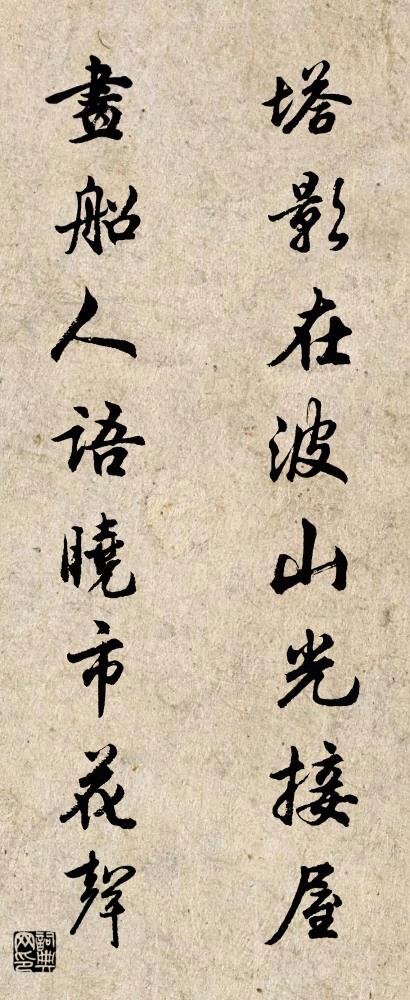 塔影在波山光接屋
畫船人語曉市花聲
詞典網印